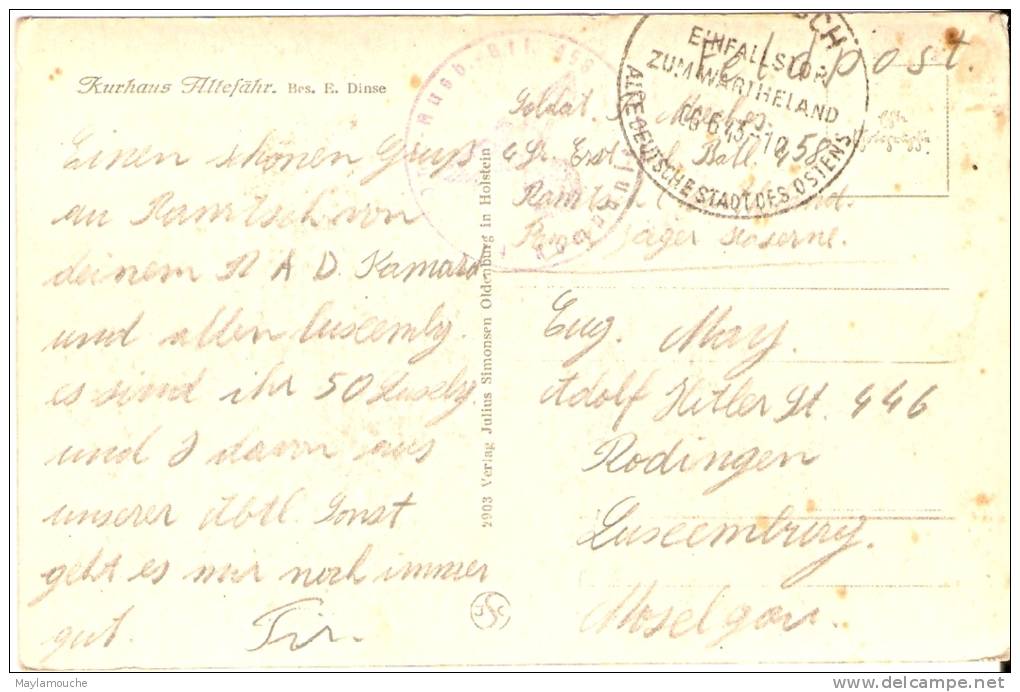 Kurhaus Altefähr. Bes. E. Dinse
Einen schönen Gruß
au Rawitsch von
deinem R A D. Kamarad
und allen Luxembg.
es sind ihr 50 Luxebg.
und 3 davon aus
unserer Abtl. Sonst
geht es mir noch immer
gut.
2903 Verlag Julius Simonsen Oldenburg in Holstein
Feldpost.
EINFALLSTOR
ZUM WARTHELAND
ALTE DEUTSCHE STADT DES OSTENS
Soldat.
Gr. Ers. Batl. 958
Kaserne.
Eug. May.
Adolf Hitler St. 446
Rodingen
Luxemburg.
Moselgau.
Maylamouche
delcampe.net